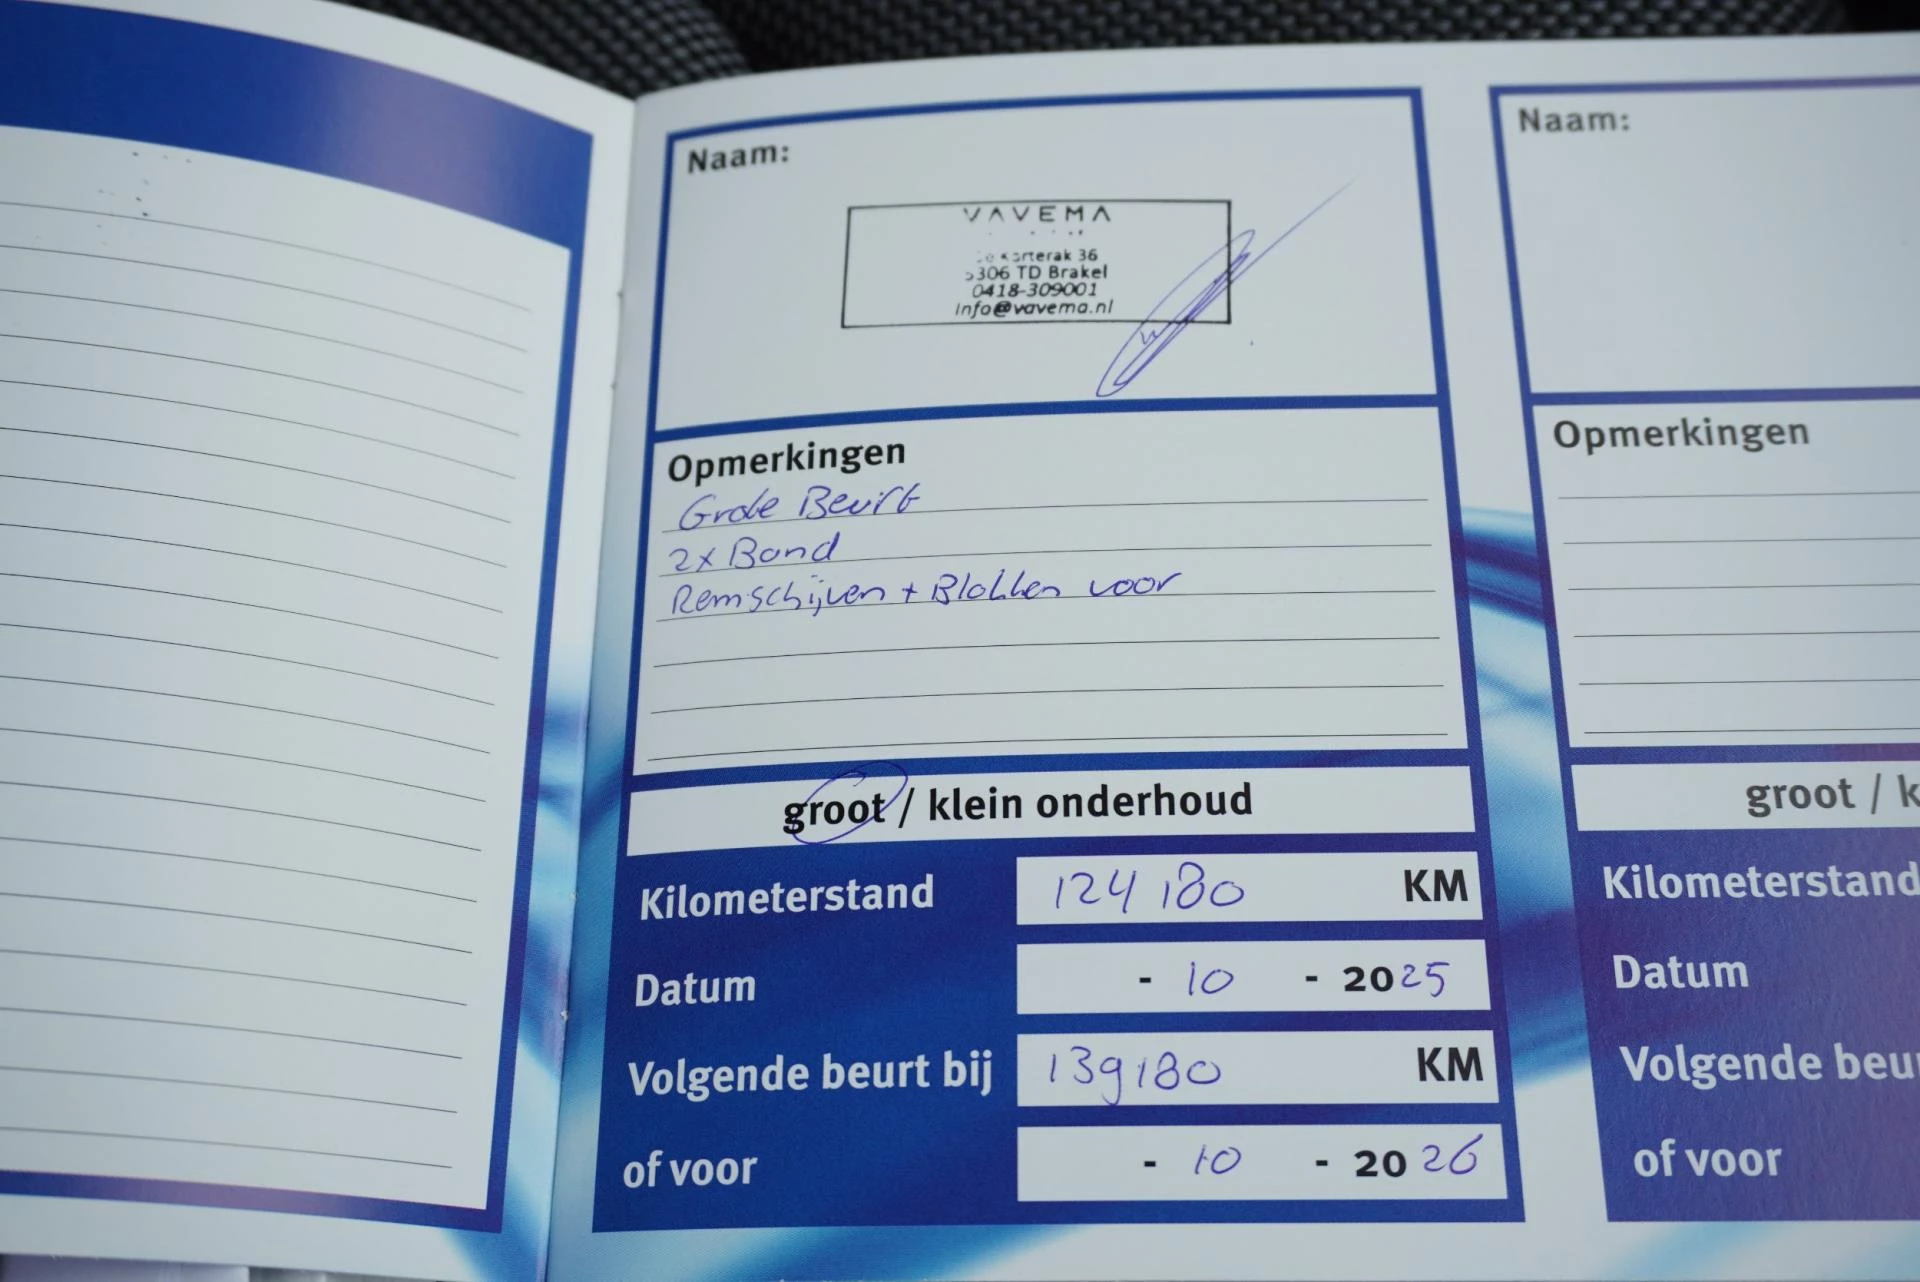 Naam:
VAVEMA
Karterak 36
5306 TD Brakel
0418-309001
info@vavema.nl
Opmerkingen
Grote Beurt
2x Band
Remschijven + Blokken voor
groot / klein onderhoud
Kilometerstand 124 180 KM
Datum - 10 - 2025
Volgende beurt bij 139180 KM
of voor - 10 - 2026
Naam:
Opmerkingen
groot / k
Kilometerstand
Datum
Volgende beu
of voor